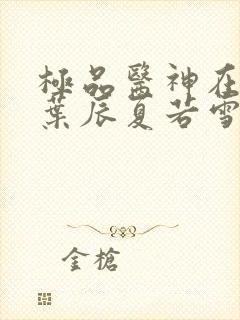 極品醫神在
葉辰夏若雪
金槍